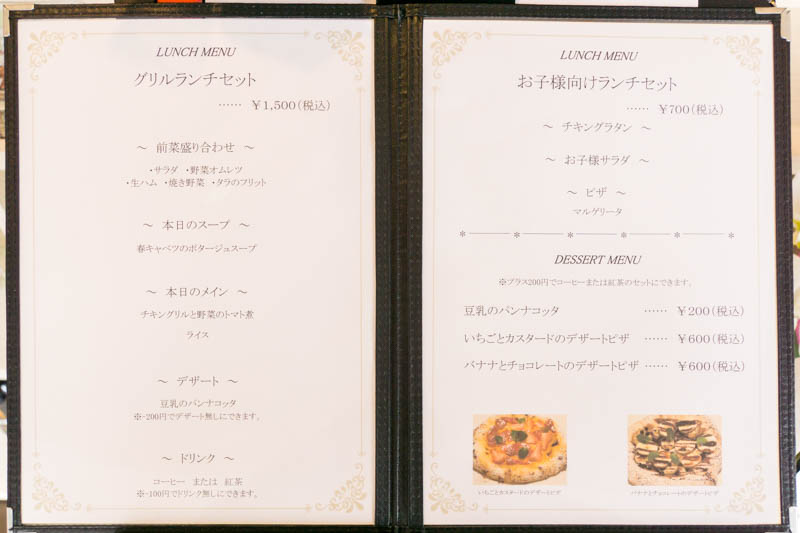 LUNCH MENU
グリルランチセット
…… ￥1,500(税込)
～ 前菜盛り合わせ ～
・サラダ ・野菜オムレツ
・生ハム ・焼き野菜 ・タラのフリット
～ 本日のスープ ～
春キャベツのポタージュスープ
～ 本日のメイン ～
チキングリルと野菜のトマト煮
ライス
～ デザート ～
豆乳のパンナコッタ
※-200円でデザート無しにできます。
～ ドリンク ～
コーヒー または 紅茶
※-100円でドリンク無しにできます。
LUNCH MENU
お子様向けランチセット
…… ￥700(税込)
～ チキングラタン ～
～ お子様サラダ ～
～ ピザ ～
マルゲリータ
DESSERT MENU
※プラス200円でコーヒーまたは紅茶のセットにできます。
豆乳のパンナコッタ …… ￥200(税込)
いちごとカスタードのデザートピザ …… ￥600(税込)
バナナとチョコレートのデザートピザ …… ￥600(税込)
いちごとカスタードのデザートピザ
バナナとチョコレートのデザートピザ